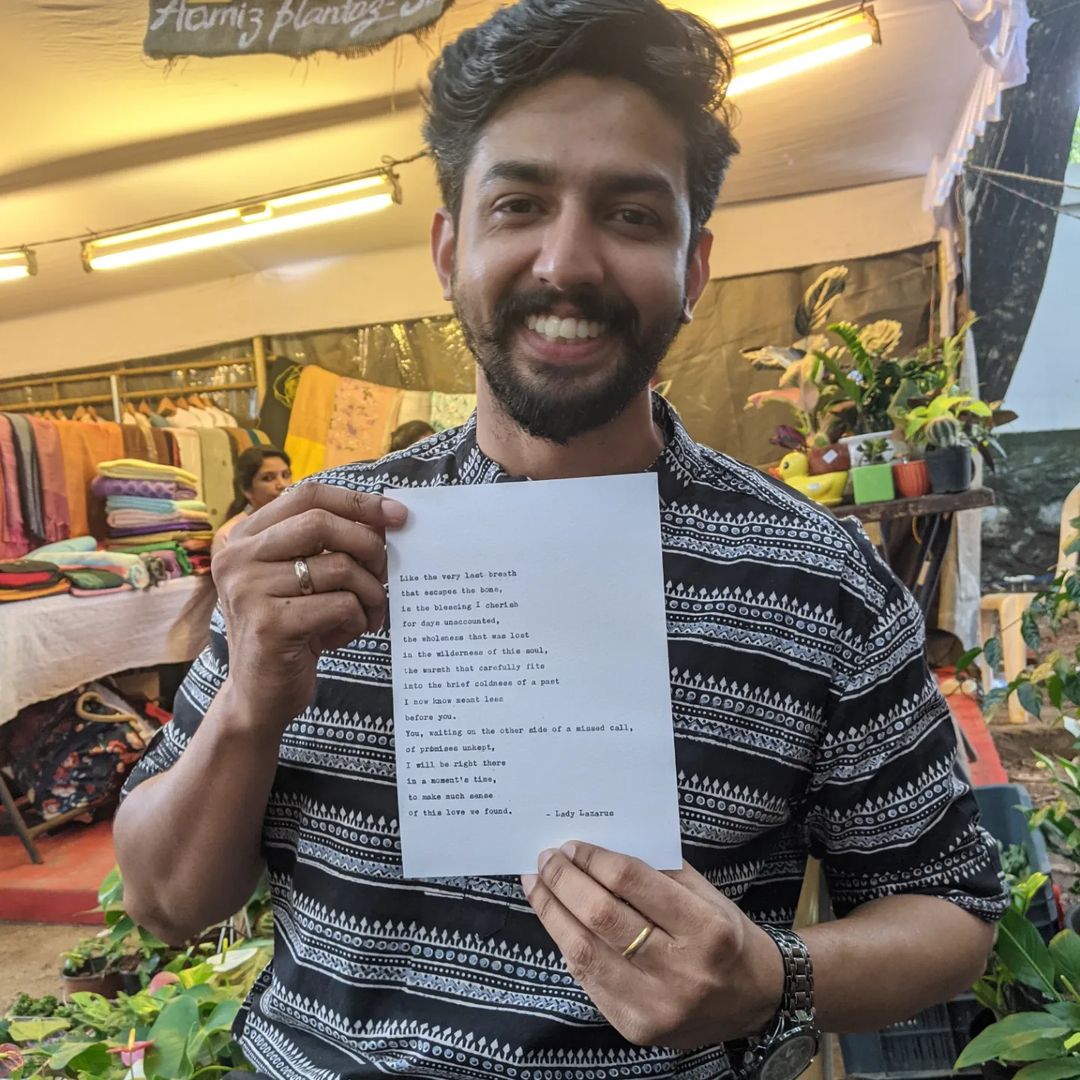 Hamiz plantoz
Like the very last breath
that escapes the bone,
is the blessing I cherish
for days unaccounted,
the wholeness that was lost
in the wilderness of this soul,
the warmth that carefully fits
into the brief coldness of a past
I now know meant less
before you.
You, waiting on the other side of a missed call,
of promises unkept,
I will be right there
in a moment's time,
to make much sense
of this love we found. - Lady Lazarus